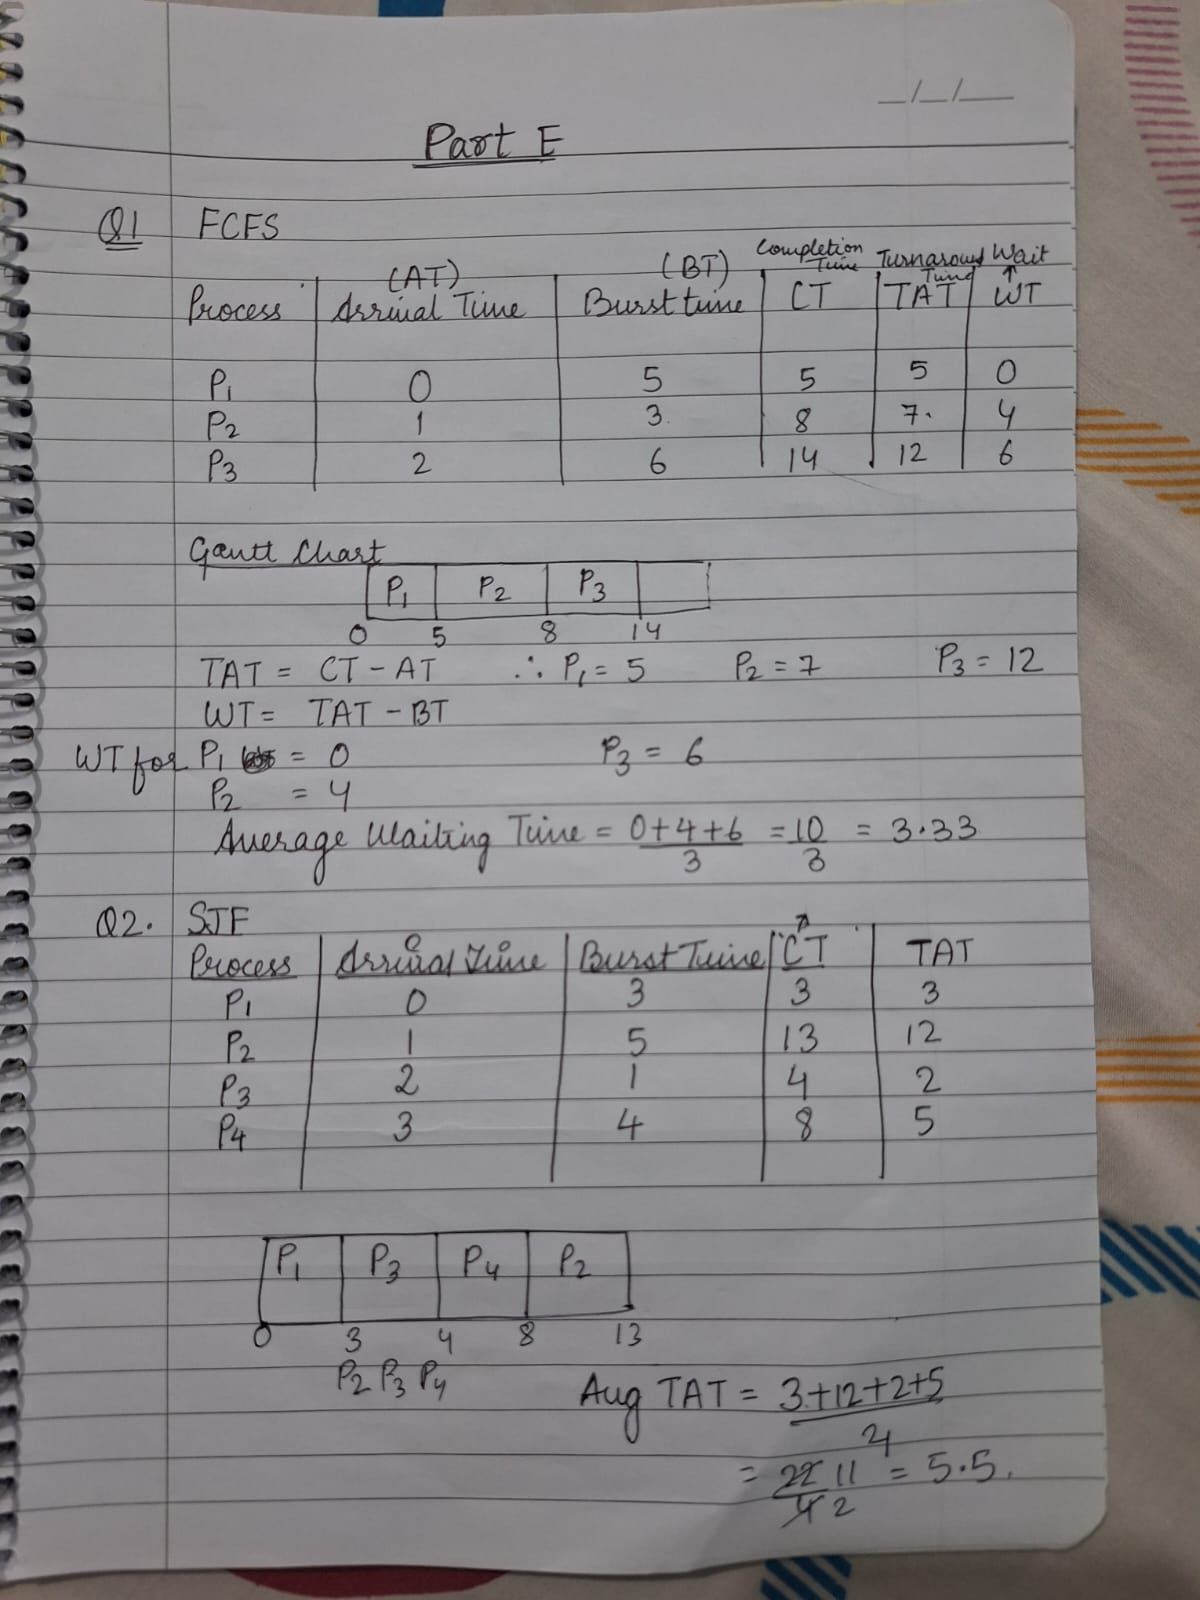 _/_/__
Part E
Q1 FCFS
Process (AT) Arrival Time (BT) Burst time Completion Time CT Turnaround Time TAT Wait WT
P1 0 5 5 5 0
P2 1 3 8 7 4
P3 2 6 14 12 6
Gantt Chart
P1 P2 P3
0 5 8 14
TAT = CT - AT ∴ P1 = 5 P2 = 7 P3 = 12
WT = TAT - BT
WT for P1 = 0 P3 = 6
P2 = 4
Average Waiting Time = 0+4+6/3 = 10/3 = 3.33
Q2. SJF
Process Arrival Time Burst Time CT TAT
P1 0 3 3 3
P2 1 5 13 12
P3 2 1 4 2
P4 3 4 8 5
P1 P3 P4 P2
0 3 4 8 13
P2 P3 P4
Avg TAT = 3+12+2+5/4
= 22/4 11/2 = 5.5.